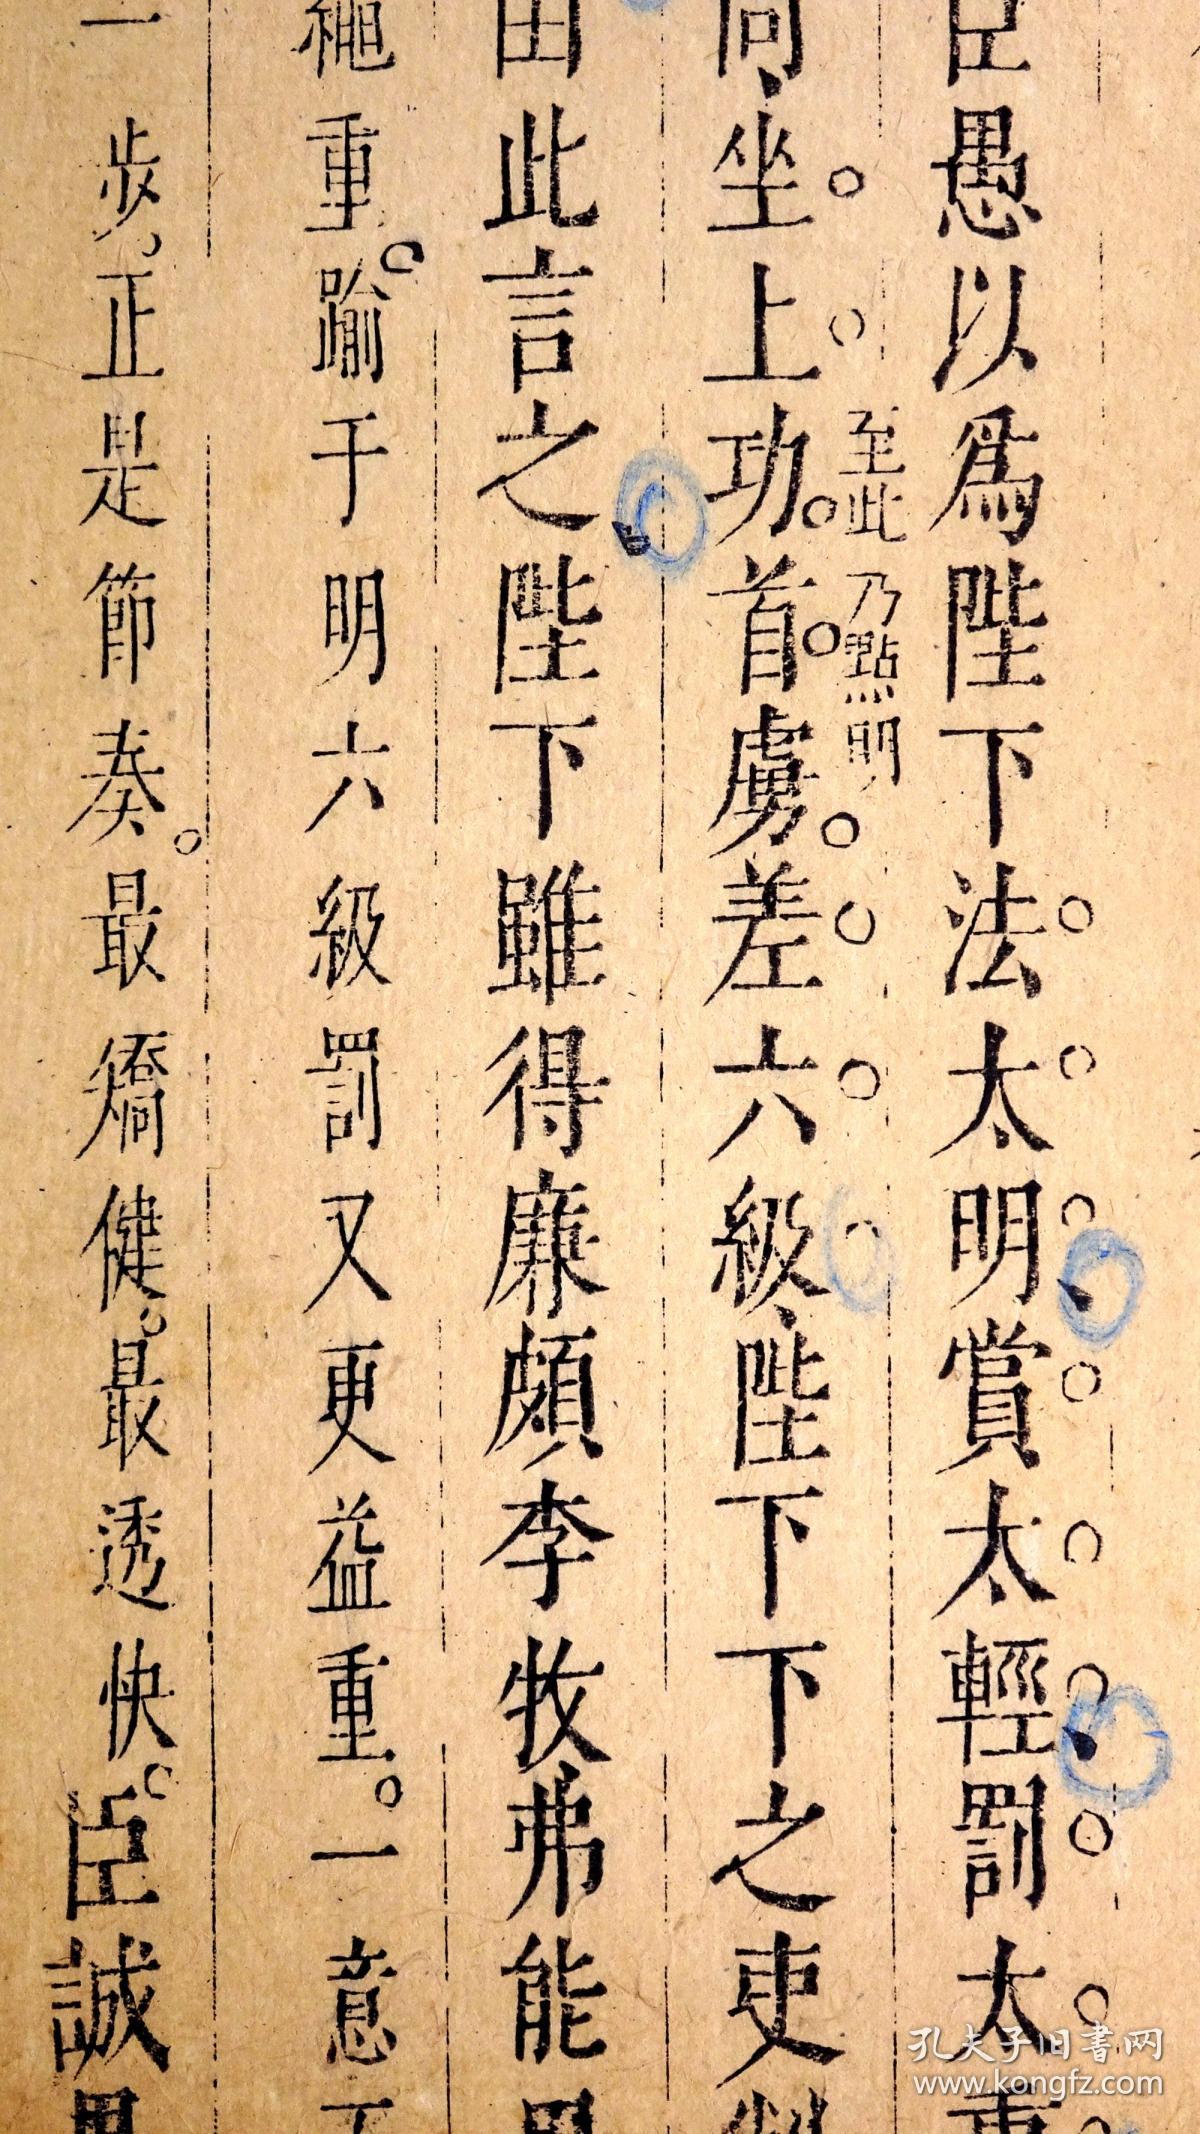 臣愚以爲陛下法太明賞太輕罰太重
尚坐上功首虜差六級陛下下之吏
至此乃點明
由此言之陛下雖得廉頗李牧弗能用
繩重踰于明六級罰又更益重一意
一步正是節奏最矯健最透快臣誠
孔夫子旧書网
www.kongfz.com